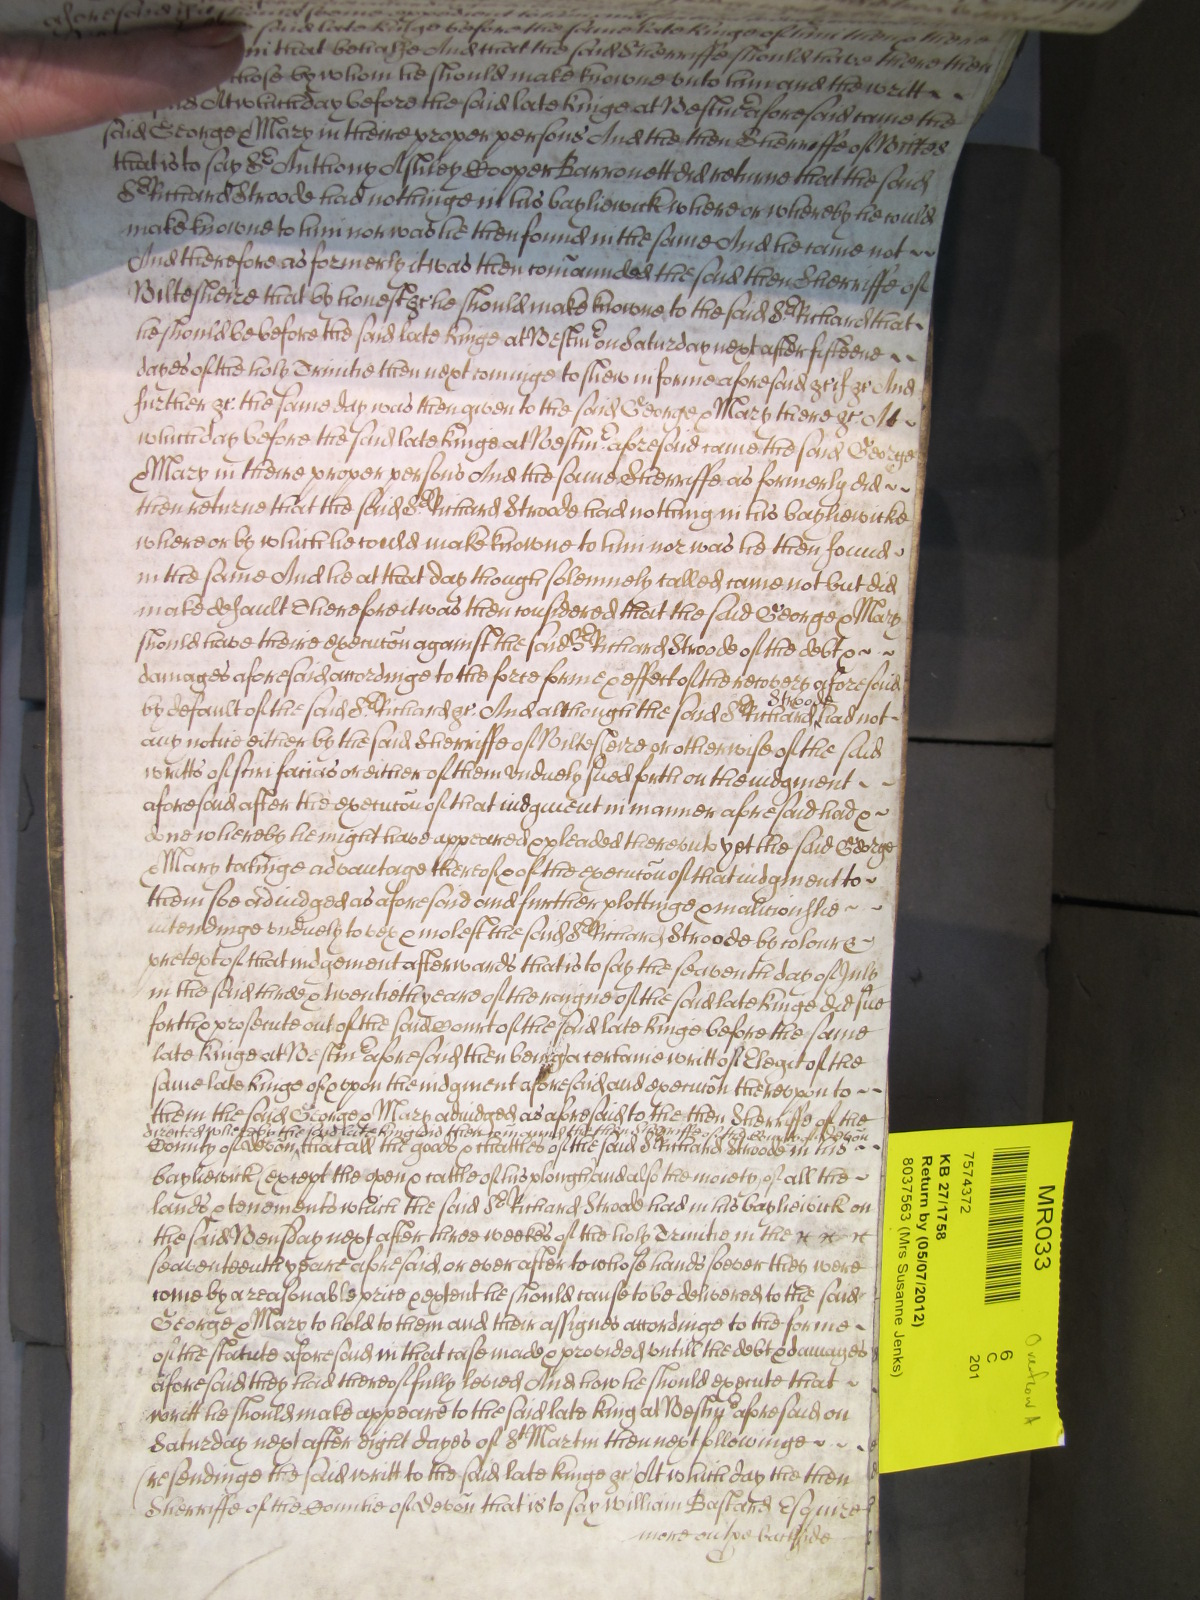 said late Kinge before the same late Kinge of him thence there
in that behalfe And that the said Sherriffe should have there then
those by whom he should make knowne unto him and the writt
And At which day before the said late Kinge at Westmr aforesaid came the
said George & Mary in theire proper persons And the then Sherriffe of Wiltes
that is to say Sr Anthony Ashley Cooper Barronett did returne that the said
Sr Richard Stroode had nothinge in his bayliewick where or whereby he could
make knowne to him nor was he then found in the same And he came not
And therefore as formerly it was then com̄aunded the said then Sherriffe of
Wiltesheire that by honest &c he should make knowne to the said Sr Richard that
he should be before the said late Kinge at Westmr on Saturday next after fifteene
dayes of the holy Trinitie then next cominge to shew in forme aforesaid &c if &c And
further &c the same day was then given to the said George & Mary there &c At
which day before the said late Kinge at Westmr aforesaid came the said George
& Mary in theire proper persons And the same Sherriffe as formerly did
then returne that the said Sr Richard Stroode had nothing in his bayliewicke
where or by which he could make knowne to him nor was he then found
in the same And he at that day though solemnely called came not but did
make default Therefore it was then considered that the said George & Mary
should have theire execucōn against the said Sr Richard Stroode of the debt &
damages aforesaid accordinge to the force forme & effect of the recovery aforesaid
by default of the said Sr Richard &c And although the said Sr Richard Stroode had not
any notice either by the said Sherriffe of Wiltesheire or otherwise of the said
writts of scire facias or either of them unduely sued forth on the iudgment
aforesaid after the execucōn of that iudgment in manner aforesaid had &
done whereby he might have appeared & pleaded thereunto yet the said George
& Mary takinge advantage thereof & of the execucōn of that iudgment to
them soe adiudged as aforesaid and further plottinge & malitiouslie
intendinge unduely to vex & molest the said Sr Richard Stroode by colour &
pretext of that iudgement afterwards that is to say the seaventh day of July
in the said three & twentieth yeare of the raigne of the said late Kinge did sue
forth & prosecute out of the said Court of the said late Kinge before the same
late Kinge at Westmr aforesaid then being a certaine writt of Elegit of the
same late Kinge of & uppon the iudgment aforesaid and execucōn thereupon to
them the said George & Mary adiudged as aforesaid to the then Sherriffe of the
directed whereby the said late Kinge did then com̄aund the then Sherriffe of the County of Devon
County of Devon that all the goods & chattles of the said Sr Richard Stroode in his
bayliewick (except the oxen & cattle of his plough) and also the moiety of all the
lands & tenements which the said Sr Richard Stroode had in his bayliewick on
the said Wensday next after three weekes of the holy Trinitie in the
seaventeenth yeare aforesaid or ever after to whose hands soever they were
come by a reasonable price & extent he should cause to be delivered to the said
George & Mary to hold to them and their assignes accordinge to the forme
of the statute aforesaid in that case made & provided untill the debt & damages
aforesaid they had thereof fully levied And how he should execute that
writt he should make appeare to the said late King at Westmr aforesaid on
Saturday next after Eight dayes of St Martin then next followinge
(resendinge the said writt to the said late Kinge &c At which day the then
Sherriffe of the Countie of Devon that is to say William Bastard Esquire
more on the backside
MR033
7574372
KB 27/1758
Return by (05/07/2012)
8037563 (Mrs Susanne Jenks)
6
C
201
Overflow A